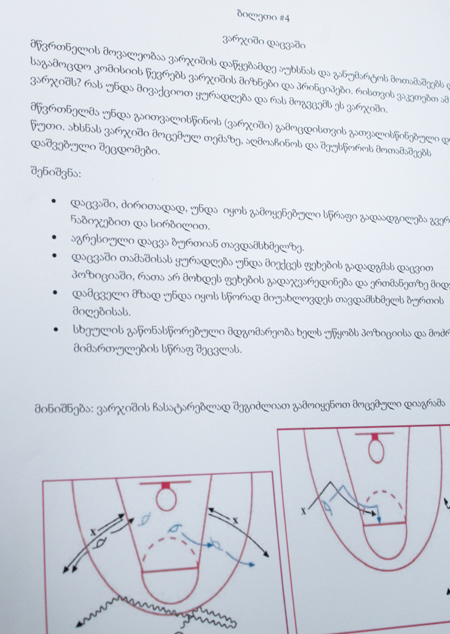 ბილეთი #4
ვარჯიში დაცვაში
მწვრთნელის მოვალეობაა ვარჯიშის დაწყებამდე აუხსნას და განუმარტოს მოთამაშეებს
საგამოცდო კომისიის წევრებს ვარჯიშის მიზნები და პრინციპები. რისთვის ვაკეთებთ ამ
ვარჯიშს? რას უნდა მივაქციოთ ყურადღება და რას მოგვცემს ეს ვარჯიში.
მწვრთნელმა უნდა გაითვალისწინოს (ვარჯიში) გამოცდისთვის გათვალისწინებული
წუთი. ახსნას ვარჯიში მოცემულ თემაზე. აღმოაჩინოს და შეუსწოროს მოთამაშეებს
დაშვებული შეცდომები.
შენიშვნა:
• დაცვაში, ძირითადად, უნდა იყოს გამოყენებული სწრაფი გადაადგილება
ჩაბიჯებით და სირბილით.
• აგრესიული დაცვა ბურთიან თავდამსხმელზე.
• დაცვაში თამაშისას ყურადღება უნდა მიექცეს ფეხების გადადგმას დაცვით
პოზიციაში, რათა არ მოხდეს ფეხების გადაჯვარედინება და ერთმანეთზე
• დამცველი მზად უნდა იყოს სწორად მიუახლოვდეს თავდამსხმელს ბურთის
მიღებისას.
• სხეულის გაწონასწორებული მდგომარეობა ხელს უწყობს პოზიციისა და
მიმართულების სწრაფ შეცვლას.
მინიშნება: ვარჯიშის ჩასატარებლად შეგიძლიათ გამოიყენოთ მოცემული დიაგრამა
x
x
x